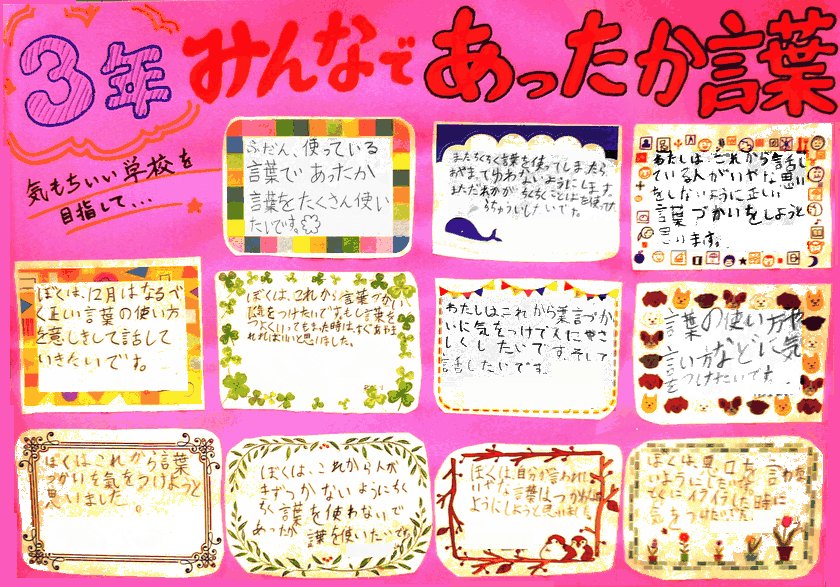 3年 みんなで あったか言葉
気もちいい学校を
目指して...
ふだん、使っている
言葉で あったか
言葉をたくさん使い
たいです。
またちくちく言葉を使ってしまったら、
あやまってゆわないようにします。
まただれかがちくちくことばを使って
ちゅういしたいです。
わたしは、これから話し
ている人がいやな思い
をしないように正しい
言葉づかいをしようと
思います。
ぼくは、12月はなるべ
く正しい言葉の使い方
を意しきして話して
いきたいです。
ぼくは、これから言葉づかい
気をつけたいです。もし言葉を
つよくいってしまった時は、すぐあやま
れればいいと思いました。
わたしはこれから葉言づか
いに気をつけて人にやさ
しくしたいです。そして
話したいです。
言葉の使い方や
言い方などに気
をつけたいです。
ぼくはこれから言葉
づかいを気をつけようと
思いました。
ぼくは、これから人が
きずつかないようにちく
ちく言葉を使わないで
あったか言葉を使いたいです
ぼくは、自分が言われて
いやな言葉はつかわない
ようにしようと思いました。
ぼくは、悪口を言わな
いようにしたいな。
とくにイライラした時に
気をつけたいです。